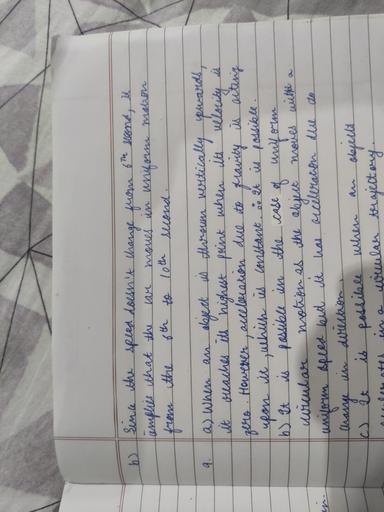 b) Since the speed doesn't change from 6th second, it
implies that the car moves in uniform motion
from the 6th to 10th second.
9. a) When an object is thrown vertically upwards,
it reaches its highest point when its velocity is
zero. However, acceleration due to gravity is acting
upon it, which is constant. ∴ It is possible.
b) It is possible in the case of uniform
circular motion as the object moves with a
uniform speed and it has acceleration due to
change in direction.
c) It is possible when an objects
in a circular trajectory.